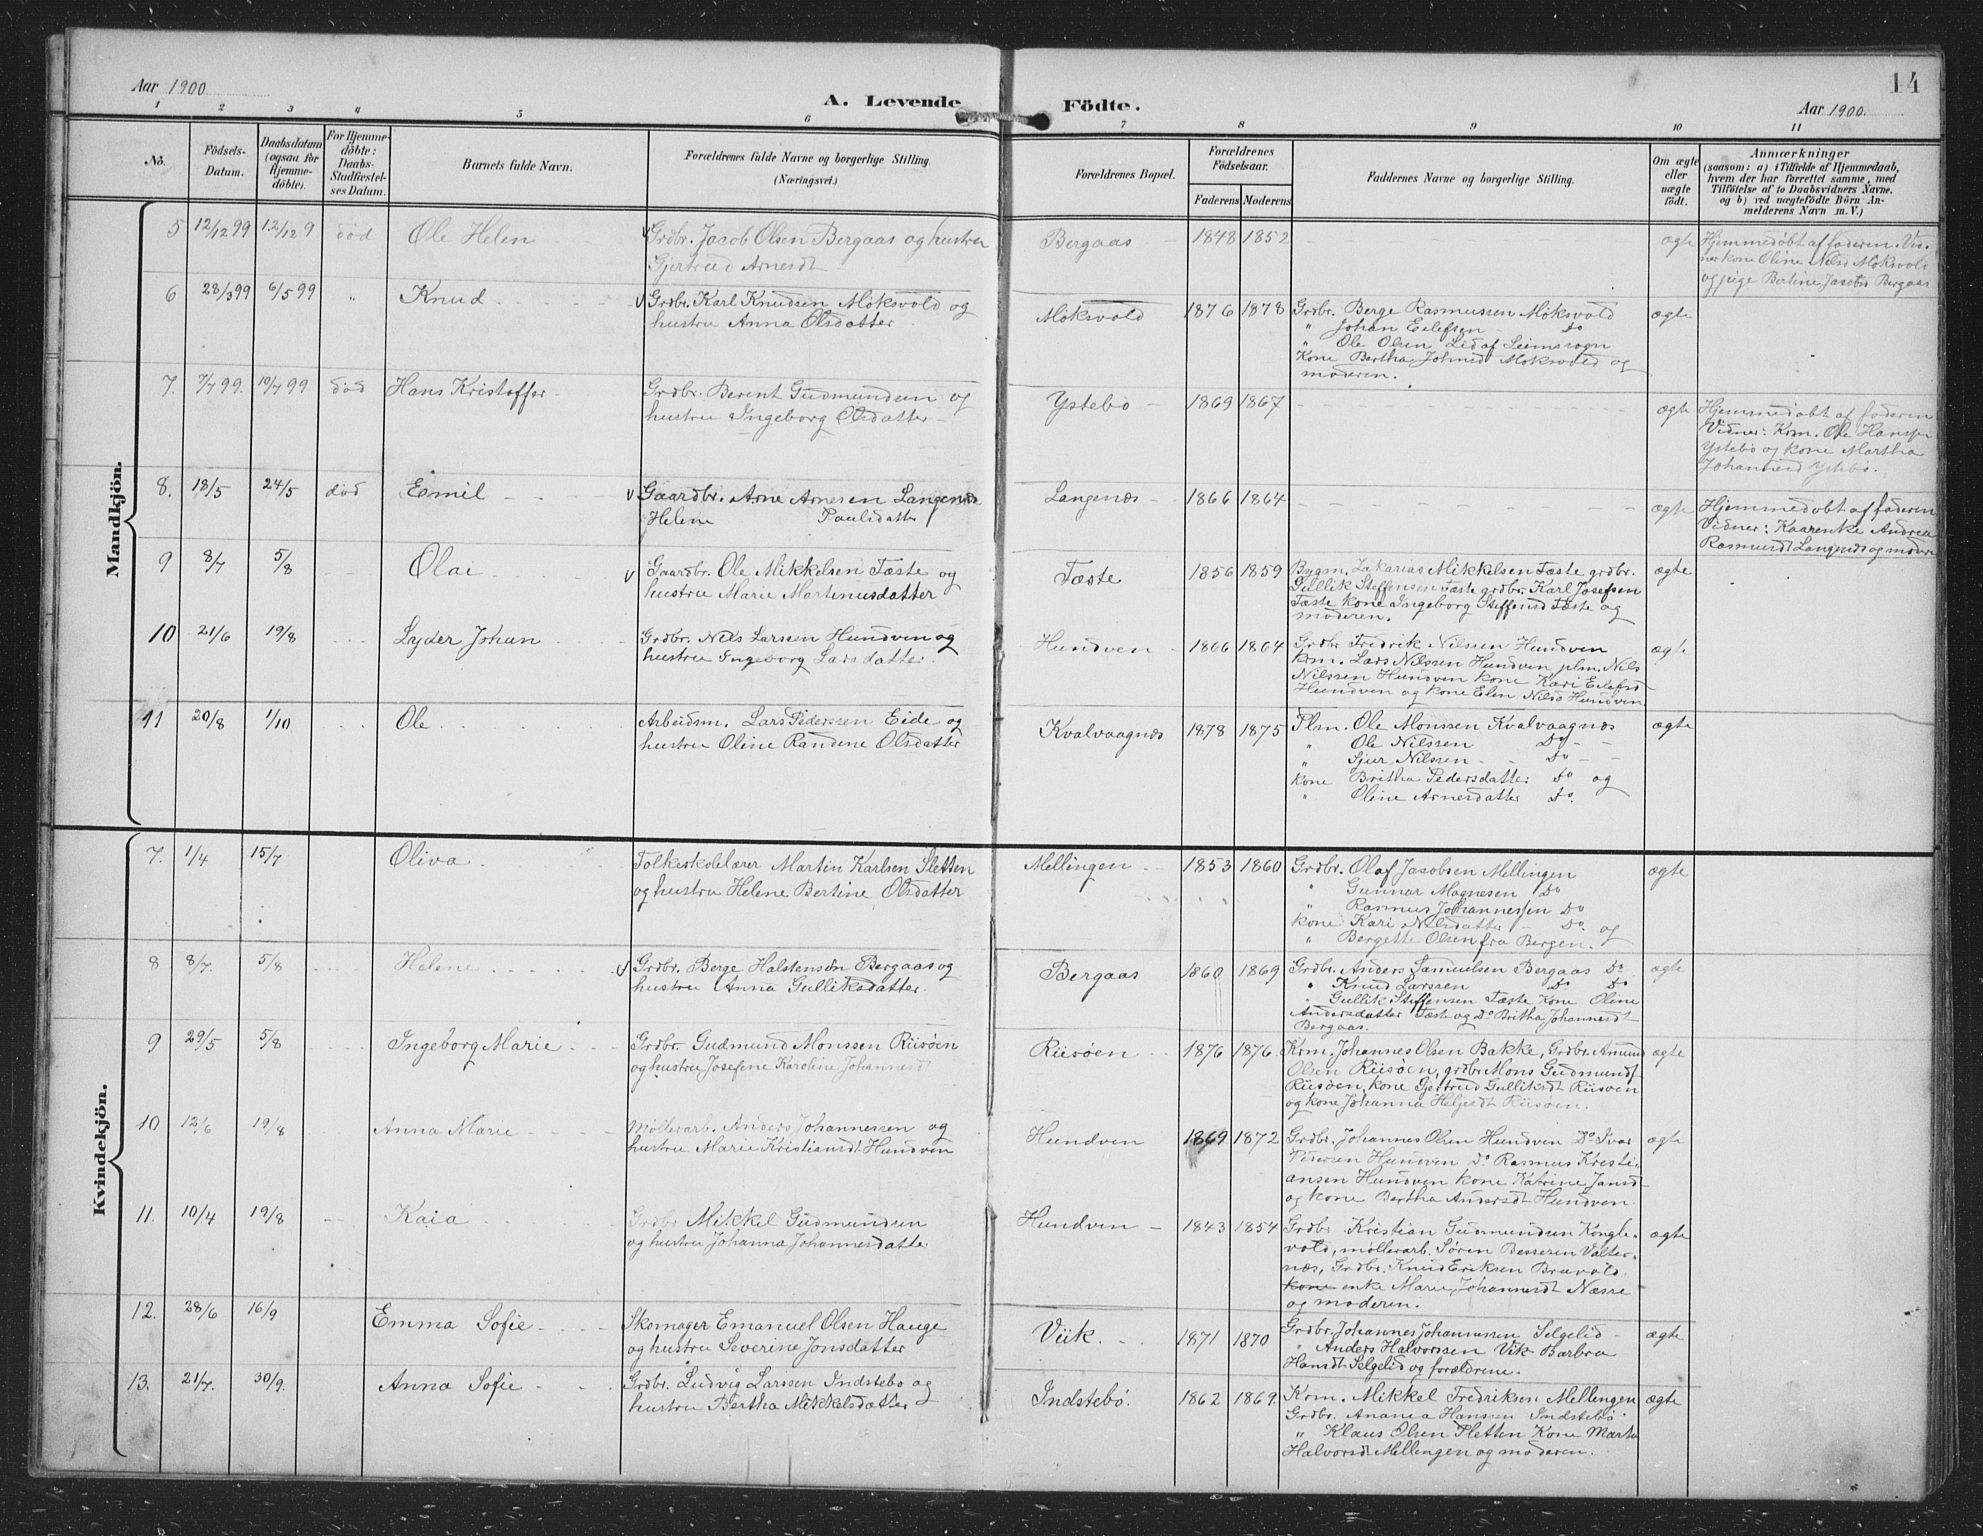 Aar 1900
A. Levende
Födte.
14
Aar 1900.
1 2 3 4 5 6 7 8 9 10 11
No.
Födsels-
Datum.
Daabsdatum
(ogsaa for
Hjemme-
döbte).
For Hjemme-
döbte:
Daabs-
Stadfæstel-
ses Datum.
Barnets fulde Navn.
Forældrenes fulde Navne og borgerlige Stilling.
(Næringsvei.)
Forældrenes Bopæl.
Forældrenes
Födselsaar.
Faderens Moderens
Faddernes Navne og borgerlige Stilling.
Om ægte
eller
uægte
födt.
Anmærkninger
(saasom: a) i Tilfælde af Hjemmedaab,
hvem der har forrettet samme, med
Tilföielse af to Daabsvidners Navne.
og b) ved uægtefödte Börn An-
melderens Navn m. V.)
Mandkjön.
5 12/12 99 12/12 9 död Ole Helen
Grdbr. Jacob Olsen Bergaas og hustru
Gjertrud Arnesdt
Bergaas 1848 1852 ægte
Hjemmedøbt af faderen. Vid-
ner kone Oline Nilsd Moksvold
og pige Bertine Jacobsd Bergaas
6 28/3 99 6/5 99 " Knud
Grdbr. Karl Knudsen Moksvold og
hustru Anna Olsdatter
Moksvold 1876 1878
Grdbr. Berge Rasmussen Moksvold
" Johan Eilefsen Do
" Ole Olsen Lid af Seimssogn
Kone Bertha Johnsd Moksvold og
moderen.
ægte
7. 7/7 99. 10/7 99 död Hans Kristoffer
Grdbr. Berent Gudmundsen og
hustru Ingeborg Olsdatter
Ystebö 1869 1867 ægte
Hjemmedøbt af faderen
Vidner: Krm. Ole Hansen
Ystebö og kone Martha
Johannesd Ystebö.
8. 18/5 24/5 död Emil
Gaardbr. Arne Arnesen Langenæs
Helene Paulsdatter
Langenæs 1866 1864 ægte
Hjemmedøbt af faderen
Vidner: Kaarenke Andrea
Rasmusdt Langenæs og moder
9 8/7 5/8 Olai
Gaardbr. Ole Mikkelsen Tæste og
hustru Marie Martinusdatter
Tæste 1856 1859
Bygm. Zakarias Mikkelsen Tæste grdbr.
Gullik Steffensen Tæste grdbr. Karl Josefsen
Tæste kone Ingeborg Steffensd Tæste og
moderen.
ægte
10 21/6 19/8 Lyder Johan
Grdbr. Nils Larssen Hundven og
hustru Ingeborg Larsdatter.
Hundven 1866 1864
Grdbr Fredrik Nilssen Hundven
krm. Lars Nilssen Hundven plm. Nils
Nilssen Hundven kone Kari Eilefsd
Hundven og kone Elen Nilsd Hundven
ægte
11 20/8 1/10 Ole
Arbeidsm. Lars Pederssen Eide og
hustru Oline Randine Olsdatter
Kvalvaagnæs 1878 1875
Plm. Ole Monssen Kvalvaagnæs
" Ole Nilssen Do
" Sjur Nilssen Do
kone Britha Pedersdatter Do og
" Oline Arnesdatter Do.
ægte
Kvindekjön.
7. 1/4 15/7 Oliva
Folkeskolelærer Martin Karlsen Sletten
og hustru Helene Bertine Olsdatter
Mellingen 1853 1860
Grdbr. Olaf Jacobsen Mellingen
" Gunnar Magnesen Do
" Rasmus Johannessen Do
kone Kari Nilsdatter Do. og
" Bergette Olsen fra Bergen.
ægte
8 8/7. 5/8 Helene
Grdbr. Berge Halstensen Bergaas og
hustru Anna Gulliksdatter.
Bergaas 1860 1869
Grdbr. Anders Samuelsen Bergaas Do
" Knud Larssen Do Do
" Gullik Steffensen Tæste Kone Oline
Andersdatter Tæste og Do Britha Johannesdt
Bergaas.
ægte
9 29/5 5/8 Ingeborg Marie
Grdbr. Gudmund Monssen Riisøen
og hustru Josefine Karoline Johannesd
Riisøen 1876 1876.
Krm. Johannes Olsen Bakke, Grdbr. Amund
Olsen Riisøen, grdbr. Mons Gudmunds
Riisøen, kone Gjertrud Gulliksdt Riisøen
og kone Johanna Heljesdt Riisøen.
ægte
10 12/6 19/8 Anna Marie
Møllerarb. Anders Johannessen og
hustru Marie Kristiansdt. Hundven
Hundven 1869 1872
Grdbr. Johannes Olsen Hundven Do Ivar
Pedersen Hundven Do Rasmus Kristi-
ansen Hundven kone Katrine Jansd
og kone Bertha Andersdt Hundven
ægte
11. 10/4 19/8 Kaia
Grdbr Mikkel Gudmundsen
og hustru Johanna Johannesdatte.
Hundven 1843 1854
Grdbr. Kristian Gudmundsen Kongle-
vold, møllerarb. Søren Bessesen Valter-
næs, Grdbr. Knud Eriksen Bruvold.
kone enke Marie Johannesdt Næsse
og moderen.
ægte
12. 28/6 16/9 Emma Sofie
Skomager Emanuel Olsen Hauge
og hustru Severine Jonsdatter
Viik. 1871 1870
Grdbr. Johannes Johannessen Selgelid
" Anders Halvorssen Vik Barbra
Hansdt Selgelid og forældrene.
ægte
13. 21/7. 30/9. Anna Sofie
Grdbr. Ludvig Larssen Indstebö og
hustru Bertha Mikkelsdatter
Indstebö. 1862 1869.
Krm. Mikkel Fredriksen Mellingen
Grdbr. Anania Hanssen Indstebö
" Klaus Olsen Sletten Kone Marta
Halvorsdt Mellingen og moderen.
ægte